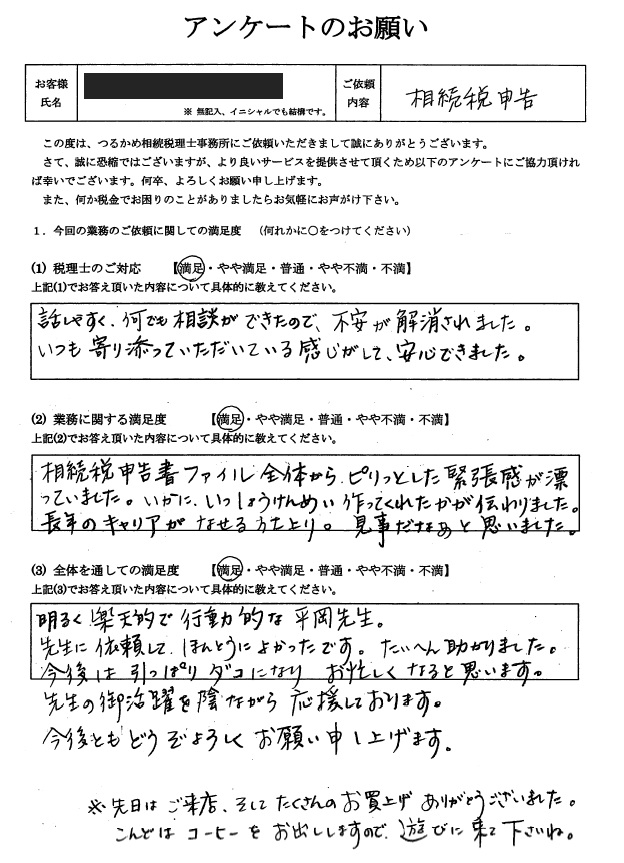 アンケートのお願い
お客様
氏名
※ 無記入、イニシャルでも結構です。
ご依頼
内容
相続税申告
この度は、つるかめ相続税理士事務所にご依頼いただきまして誠にありがとうございます。
さて、誠に恐縮ではございますが、より良いサービスを提供させて頂くため以下のアンケートにご協力頂けれ
ば幸いでございます。何卒、よろしくお願い申し上げます。
また、何か税金でお困りのことがありましたらお気軽にお声がけ下さい。
1．今回の業務のご依頼に関しての満足度　（何れかに○をつけてください）
(1) 税理士のご対応　【満足・やや満足・普通・やや不満・不満】
上記(1)でお答え頂いた内容について具体的に教えてください。
話しやすく、何でも相談ができたので、不安が解消されました。
いつも寄り添っていただいている感じがして、安心できました。
(2) 業務に関する満足度　【満足・やや満足・普通・やや不満・不満】
上記(2)でお答え頂いた内容について具体的に教えてください。
相続税申告書ファイル全体から、ピリっとした緊張感が漂
っていました。いかに、いっしょうけんめい作ってくれたかが伝わりました。
長年のキャリアがなせる方たより。見事だなぁと思いました。
(3) 全体を通しての満足度　【満足・やや満足・普通・やや不満・不満】
上記(3)でお答え頂いた内容について具体的に教えてください。
明るく楽天的で行動的な平岡先生。
先生に依頼して、ほんとうによかったです。たいへん助かりました。
今後は引っぱりダコになり お忙しくなると思います。
先生の御活躍を陰ながら応援しております。
今後ともどうぞよろしくお願い申し上げます。
※先日はご来店、そしてたくさんのお買上げありがとうございました。
こんどはコーヒーをお出ししますので、遊びに来て下さいね。